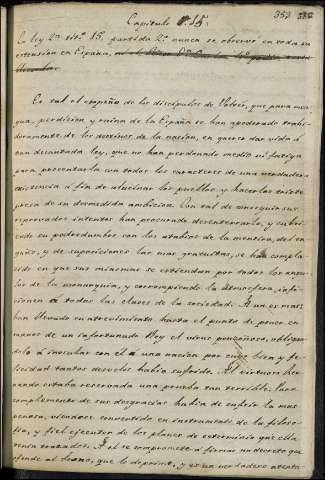 353
Capitulo 15.
La ley 2ª tit.º 15, partida 2ª nunca se observó en toda su
estension en España,
Es tal el empeño de los discipulos de Volter, que para men-
gua, perdicion y ruina de la España se han apoderado traido-
doramente de los destinos de la nacion, en querer dar vida á
tan decantada ley, que no han perdonado medio ni fatiga
para presentarla con todos los caracteres de una verdadera
existencia á fin de alucinar los pueblos y hacerlos triste
presa de su desmedida ambicion. Con tal de conseguir sus
reprovados intentos han procurado desenterrarla, y cubri-
endo su podredumbre con los atabios de la mentira, del en-
gaño, y de suposiciones las mas gratuitas, se han compla-
cido en que sus miasmas se estiendan por todos los angu-
los de la monarquia, y corrompiendo la atmosfera, infi-
cionen á todas las clases de la sociedad. Aun es mas;
han llevado su atrevimiento hasta el punto de poner en
manos de un infortunado Rey el virus ponzoñoso, obligan-
dolo á inocular con él á una nacion por cuyo bien y fe-
licidad tantos desvelos habia sufrido. Al virtuoso Fer-
nando estaba reservada una prueba tan terrible. Para
complemento de sus desgracias habia de sufrir la mas
penosa, viendose convertido en instrumento de la filoso-
fia, y fiel ejecutor de los planes de esterminio que ella
tenia trazados. A él se comprometió á firmar un decreto que
ofende al trono, que lo deprime, y es un verdadero atenta-